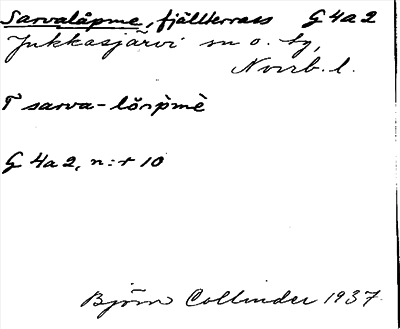 Sarvalåpme, fjällterrass G 4a 2
Jukkasjärvi sn o. tg,
Norrb. l.
T sarva-lōəpmè
G 4a 2, n:r 10
Björn Collinder 1937.